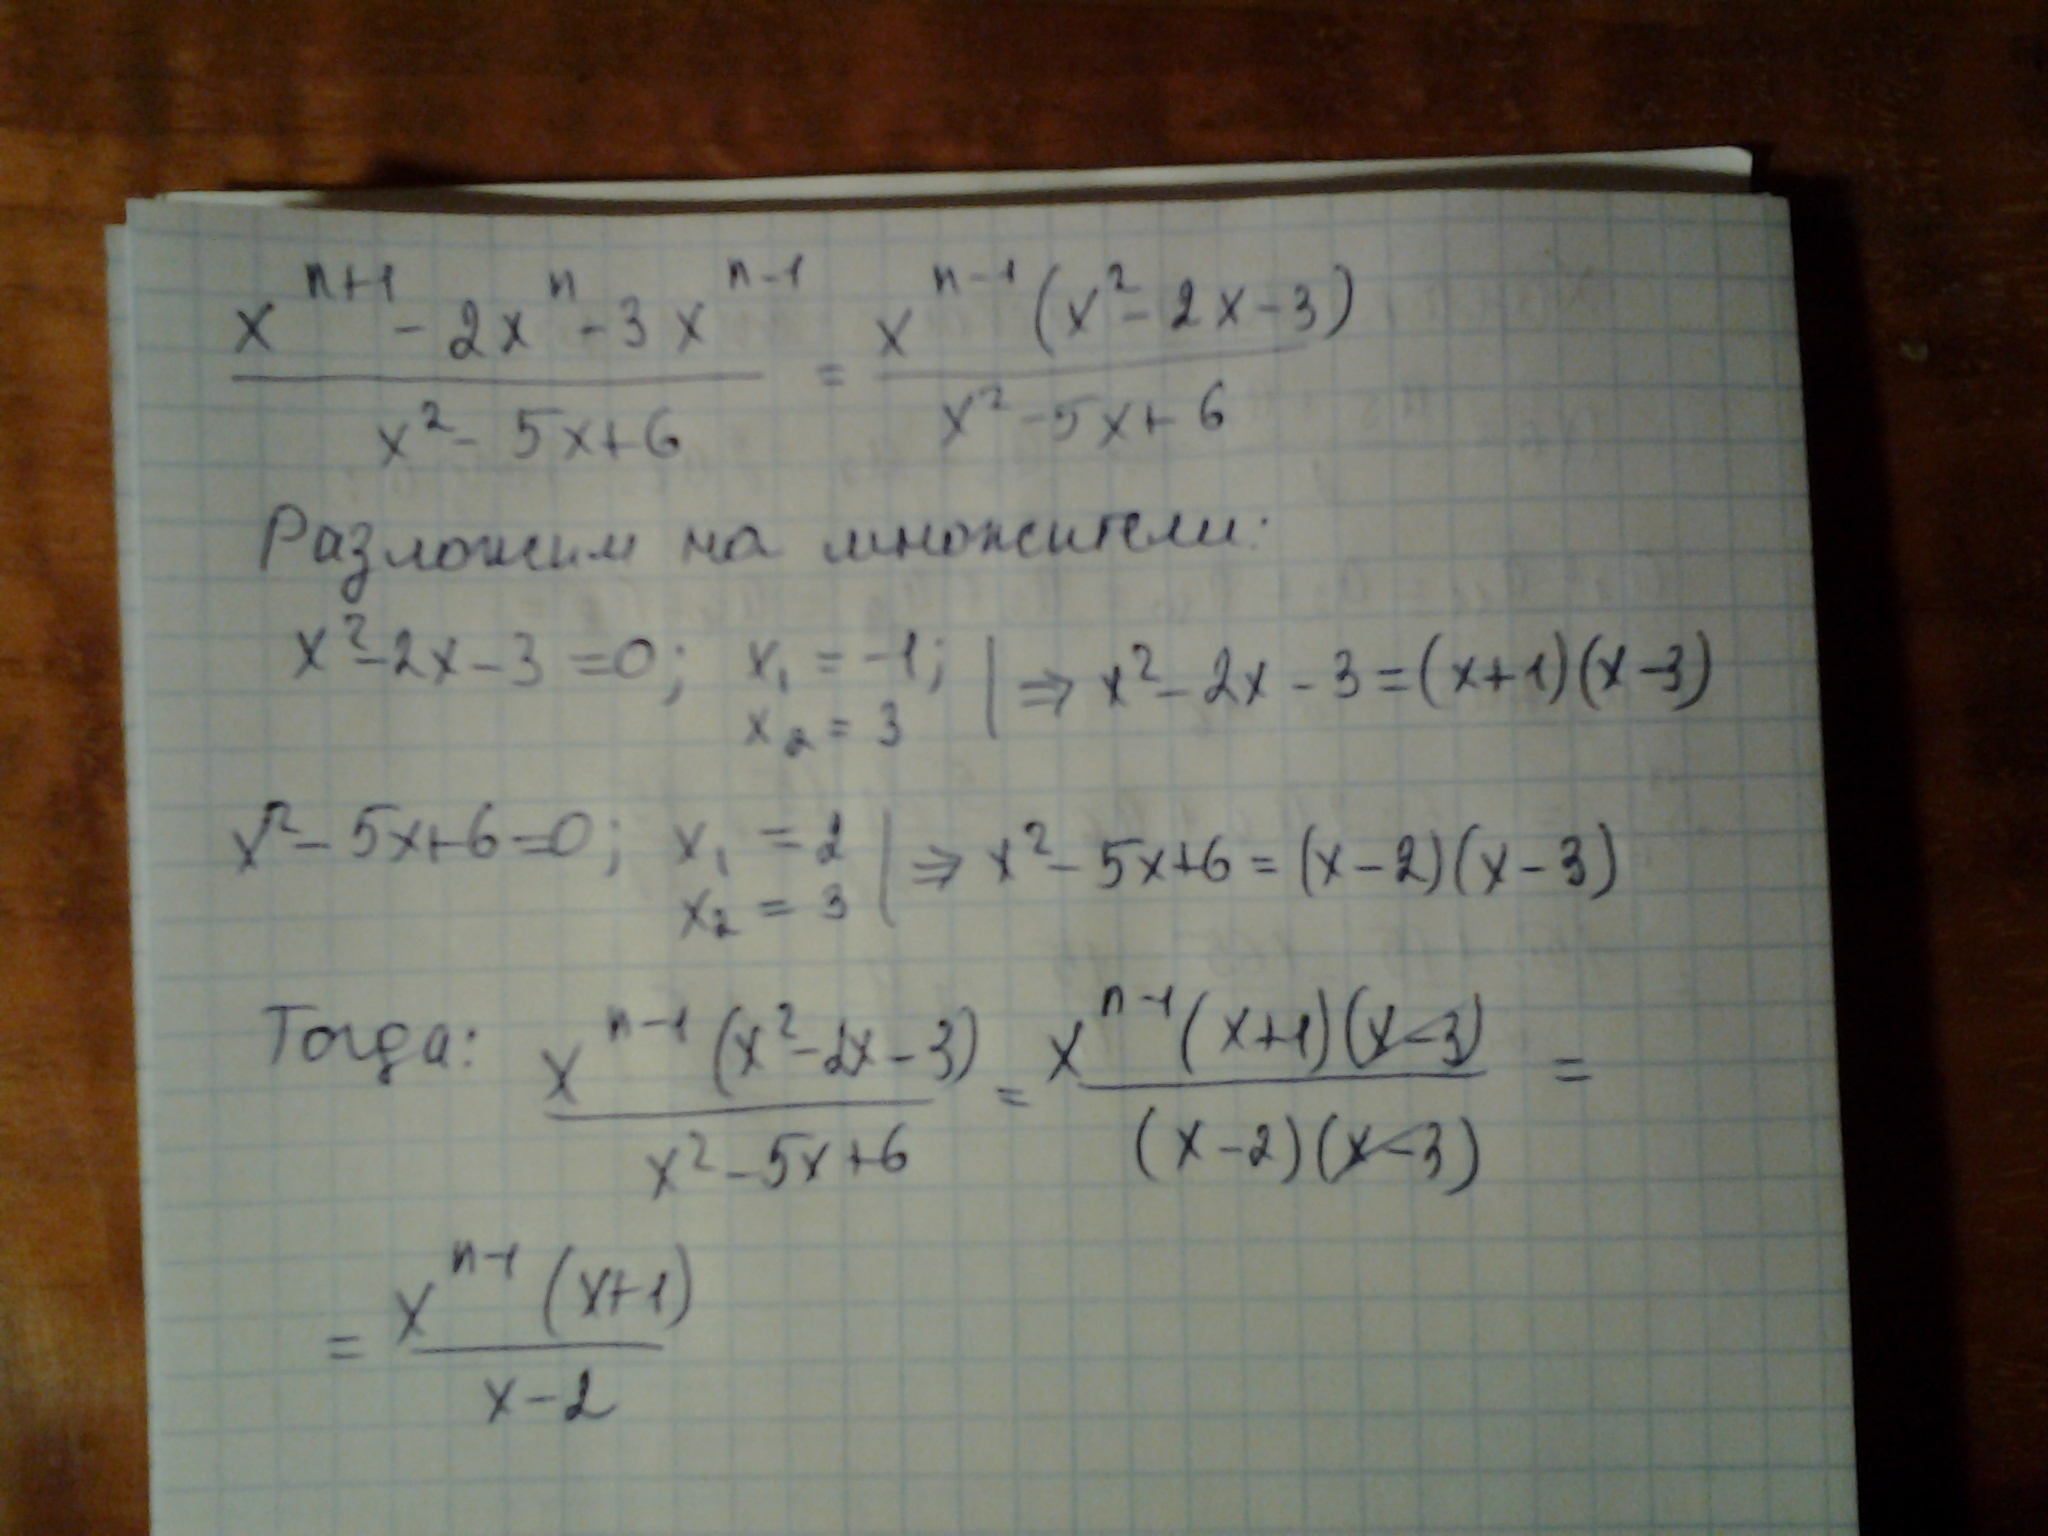 (x^{n+1} - 2x^n - 3x^{n-1})/(x² - 5x + 6) = (x^{n-1}(x² - 2x - 3))/(x² - 5x + 6)
Разложим на множители:
x² - 2x - 3 = 0; x₁ = -1; x₂ = 3 | ⇒ x² - 2x - 3 = (x+1)(x-3)
x² - 5x + 6 = 0; x₁ = 2 x₂ = 3 | ⇒ x² - 5x + 6 = (x-2)(x-3)
Тогда: (x^{n-1}(x² - 2x - 3))/(x² - 5x + 6) = (x^{n-1}(x+1)(x-3))/((x-2)(x-3)) =
= (x^{n-1}(x+1))/(x-2)